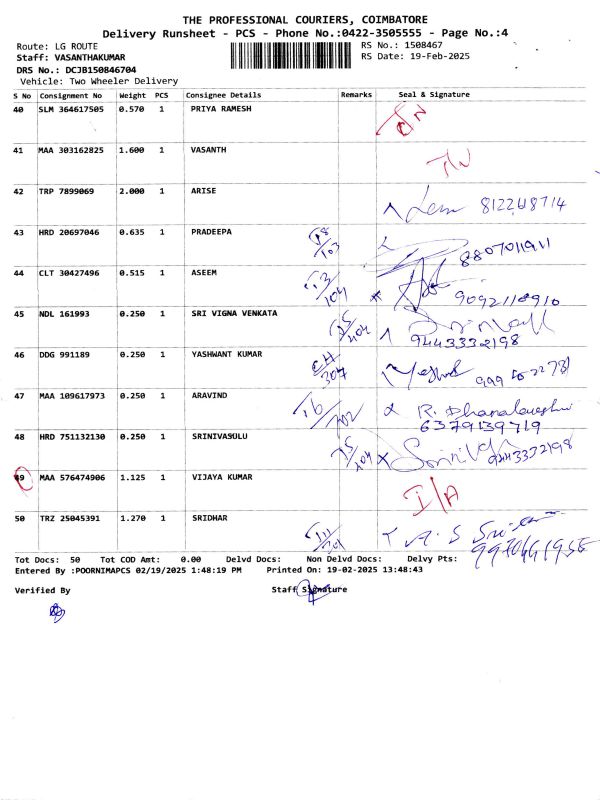 THE PROFESSIONAL COURIERS, COIMBATORE
Delivery Runsheet - PCS - Phone No.:0422-3505555 - Page No.:4
Route: LG ROUTE RS No.: 1508467
Staff: VASANTHAKUMAR RS Date: 19-Feb-2025
DRS No.: DCJB150846704
Vehicle: Two Wheeler Delivery
S No Consignment No Weight PCS Consignee Details Remarks Seal & Signature
40 SLM 364617505 0.570 1 PRIYA RAMESH
41 MAA 303162825 1.600 1 VASANTH
42 TRP 7899069 2.000 1 ARISE
43 HRD 20697046 0.635 1 PRADEEPA
8807011911
44 CLT 30427496 0.515 1 ASEEM
9092110910
45 NDL 161993 0.250 1 SRI VIGNA VENKATA
9443332198
46 DDG 991189 0.250 1 YASHWANT KUMAR
47 MAA 109617973 0.250 1 ARAVIND
6379139719
48 HRD 751132130 0.250 1 SRINIVASULU
9443332198
49 MAA 576474906 1.125 1 VIJAYA KUMAR I/A
50 TRZ 25045391 1.270 1 SRIDHAR
Tot Docs: 50 Tot COD Amt: 0.00 Delvd Docs: Non Delvd Docs: Delvy Pts:
Entered By :POORNIMAPCS 02/19/2025 1:48:19 PM Printed On: 19-02-2025 13:48:43
Verified By Staff Signature